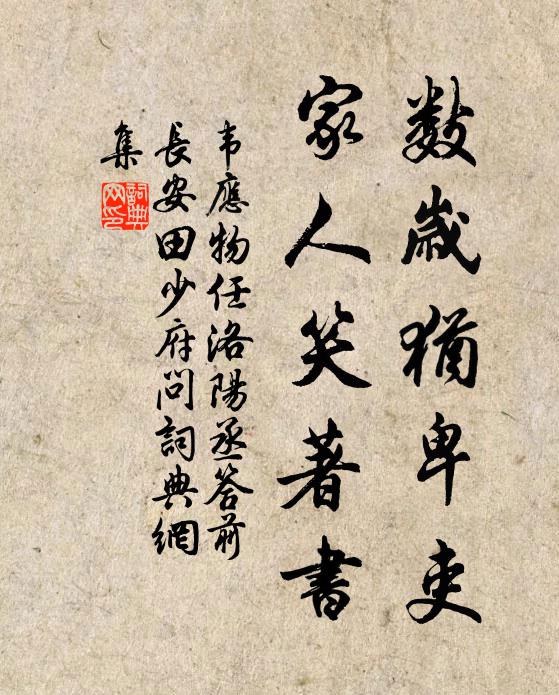 数歲猶卑吏
家人笑著書
韦應物任洛陽丞答前
長安田少府問詞典網
集
詞典
网印